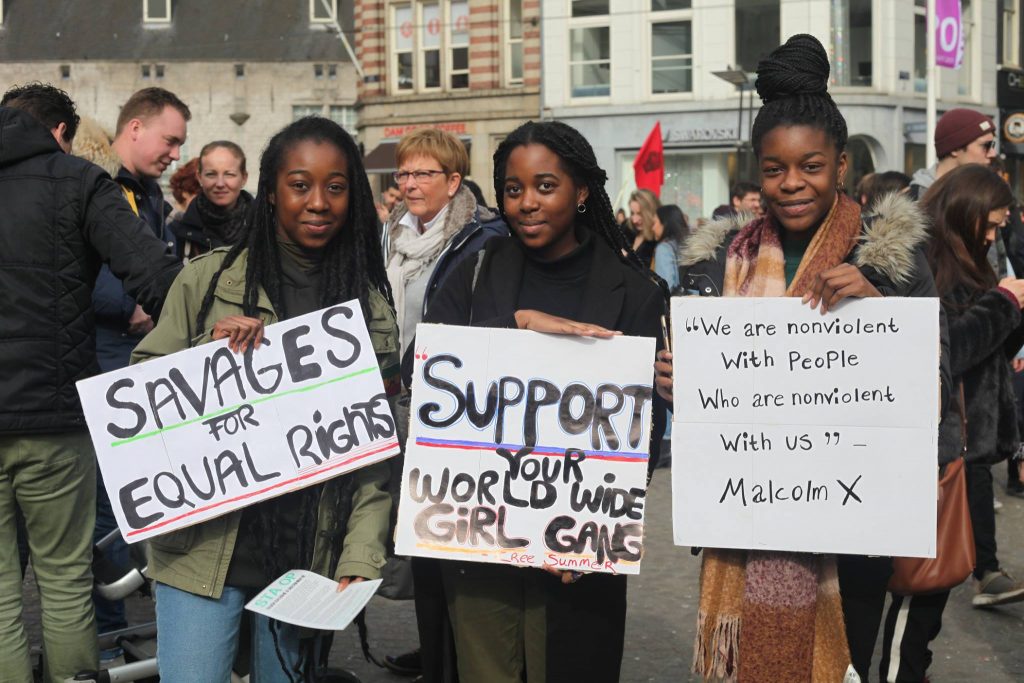 SAVAGES
FOR
EQUAL RigHTS
“SUPPORT
YOUR
WORLD WiDE
GiRL GANG
-Ree Summer
“We are nonviolent
With PeoPle
Who are nonviolent
With us” –
Malcolm X
STA OP
SWAROVSKI